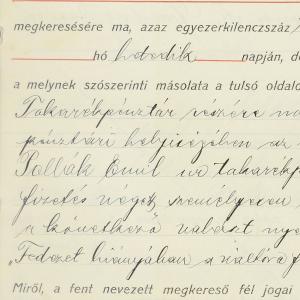 megkeresésére ma, azaz egyezerkilenczszáz
hó hetedik napján, de
a melynek szószerinti másolata a tulsó oldalo
Takarékpénztár részére
pénztári helyiségében az
Pollák Emil ur takarékp
fizetés végett személyesen
a következő választ nye
"Fedezet hiányában a váltóra f
Miről, a fent nevezett megkereső fél jogai